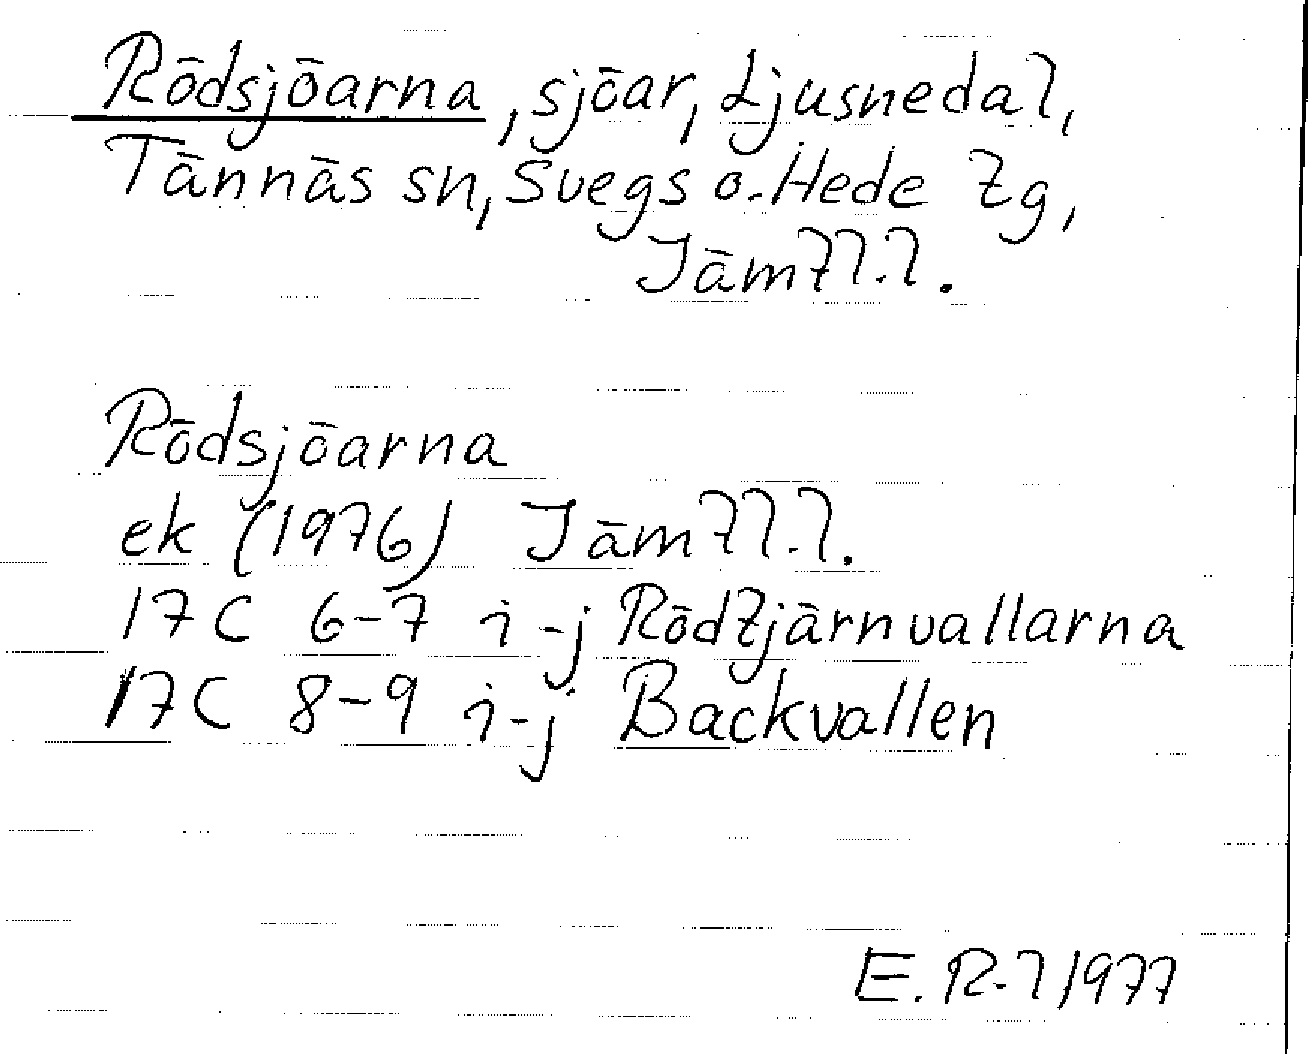 Rödsjöarna, sjöar, Ljusnedal,
Tännäs sn, Svegs o. Hede tg,
Jämtl.l.
Rödsjöarna
ek (1976) Jämtl.l.
17C 6-7 i-j Rödtjärnvallarna
17C 8-9 i-j Backvallen
E.R-l 1977